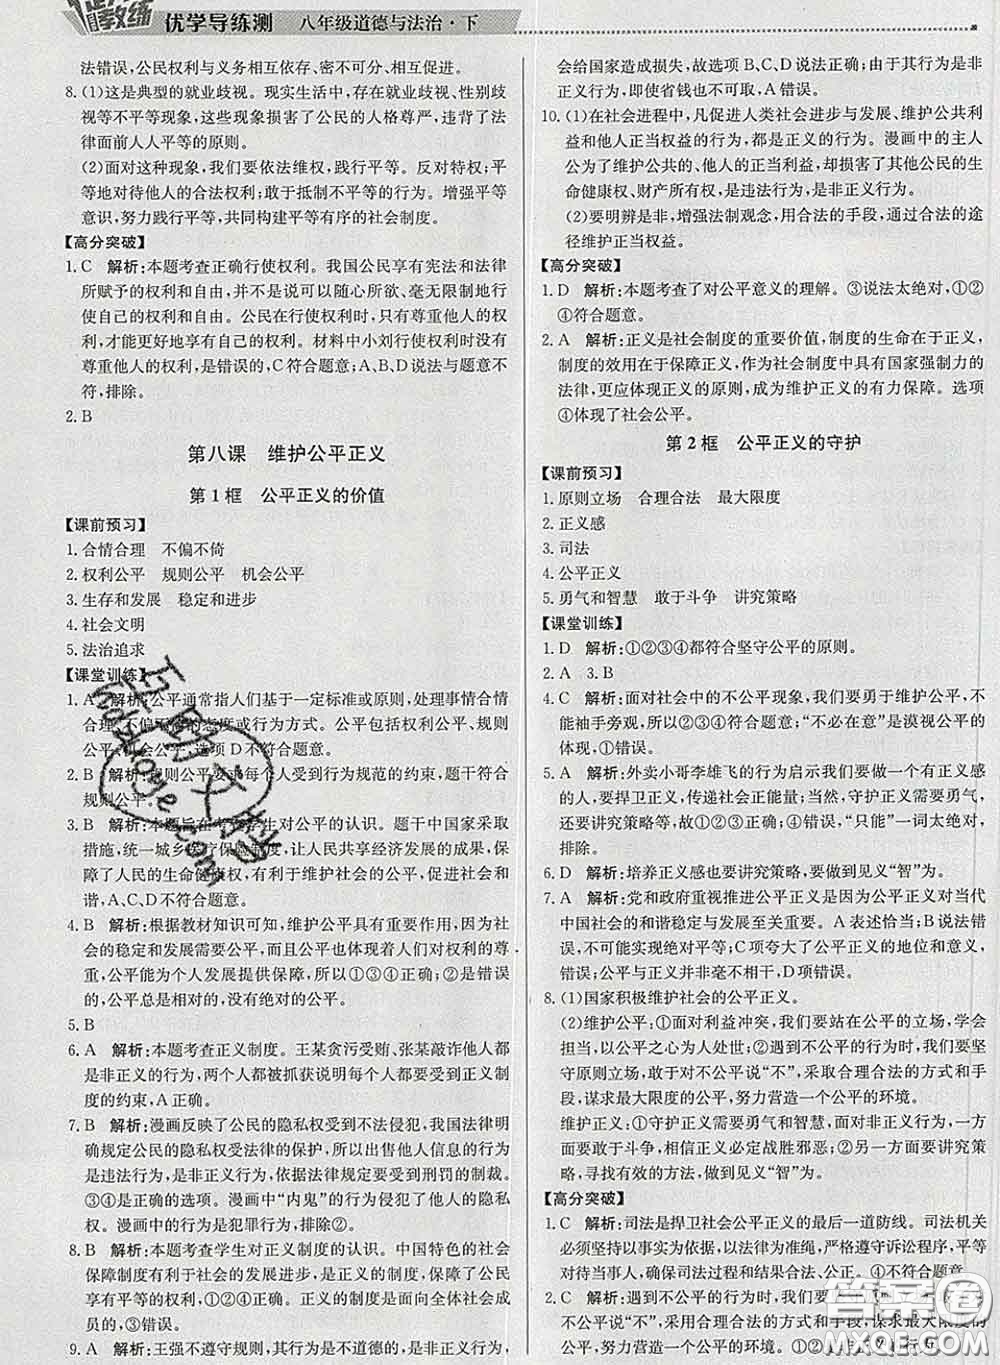 教练
优学导练测 八年级道德与法治·下
法错误,公民权利与义务相互依存、密不可分、相互促进。
8. (1)这是典型的就业歧视。现实生活中,存在就业歧视、性别歧
视等不平等现象,这些现象损害了公民的人格尊严,违背了法
律面前人人平等的原则。
(2)面对这种现象,我们要依法维权,践行平等。反对特权;平
等地对待他人的合法权利;敢于抵制不平等的行为。增强平等
意识,努力践行平等,共同构建平等有序的社会制度。
【高分突破】
1. C 解析:本题考查正确行使权利。我国公民享有宪法和法律
所赋予的权利和自由,并不是说可以随心所欲、毫无限制地行
使自己的权利和自由。公民在行使权利时,只有尊重他人的权
利,才能更好地享有自己的权利。材料中小刘行使权利时没有
尊重他人的权利,是错误的,C符合题意;A、B、D说法与题意不
符,排除。
2. B
第八课 维护公平正义
第1框 公平正义的价值
【课前预习】
1. 合情合理 不偏不倚
2. 权利公平 规则公平 机会公平
3. 生存和发展 稳定和进步
4. 社会文明
5. 法治追求
【课堂训练】
1. A 解析:公平通常指人们基于一定标准或原则,处理事情合情
合理、不偏不倚的态度或行为方式。公平包括权利公平、规则
公平、机会公平,选项D不符合题意。
2. B 解析:规则公平要求每个人受到行为规范的约束,题干符合
规则公平。
3. B 解析:本题旨在考查学生对公平的认识。题干中国家采取
措施,统一城乡医疗保险制度,让人民共享经济发展的成果,保
障了人民的生命健康权,有利于维护社会公平,促进社会和
谐,A、C、D不符合题意。
4. B 解析:根据教材知识可知,维护公平具有重要作用,因为社
会的稳定和发展需要公平,而且公平也体现着人们对权利的尊
重,公平能为个人发展提供保障,所以①③④正确;②是错误
的,公平总是相对的,没有绝对的公平。
5. B
6. A 解析:本题考查正义制度。王某贪污受贿、张某敲诈他人都
是非正义的行为,两个人都被抓获说明人们都要受到正义制度
的约束,A正确。
7. B 解析:漫画反映了公民的隐私权受到不法侵犯,我国法律明
确规定公民的隐私权受法律的保护,所以非法侵犯他人的行为
是违法行为,是非正义行为,依据法律规定要受到刑罚的制裁。
③④是正确的选项。漫画中“内鬼”的行为侵犯了他人的隐私
权。漫画中的行为是犯罪行为,排除②。
8. B 解析:本题考查学生对正义制度的认识。中国特色的社会
保障制度有利于社会的健康发展,是正义的制度,也是对社会
发展具有积极作用的制度,正义制度要关怀全体社会成
员的,①错误。
9. A 解析:王强不遵守规则,其行为是不道德的,是非正义行为,
会给国家造成损失,故选项B、C、D说法正确;由于其行为是非
正义行为,即使省钱也不可取,A错误。
10. (1)在社会进程中,凡促进人类社会进步与发展、维护公共利
益和他人正当权益的行为,都是正义的行为。漫画中的主人
公为了维护公共的、他人的正当利益,却损害了其他公民的生
命健康权、财产所有权,是违法行为,是非正义行为。
(2)要明辨是非,增强法制观念,用合法的手段,通过合法的途
径维护正当权益。
【高分突破】
1. D 解析:本题考查了对公平意义的理解。③说法太绝对,①②
④符合题意。
2. A 解析:正义是社会制度的重要价值,制度的生命在于正义,
制度的效用在于保障正义,作为社会制度中具有国家强制力的
法律,更应体现正义的原则,成为维护正义的有力保障。选项
④体现了社会公平。
第2框 公平正义的守护
【课前预习】
1. 原则立场 合理合法 最大限度
2. 正义感
3. 司法
4. 公平正义
5. 勇气和智慧 敢于斗争 讲究策略
【课堂训练】
1. D 解析:①②③④都符合坚守公平的原则。
2. A 3. B
4. C 解析:面对社会中的不公平现象,我们要勇于维护公平,不
能袖手旁观,所以②③④符合题意;“不必在意”是漠视公平的
体现,①错误。
5. A 解析:外卖小哥李雄飞的行为启示我们要做一个有正义感
的人,要捍卫正义,传递社会正能量;当然,守护正义需要勇气,
还要讲究策略等,故①②③正确;④错误,“只能”一词太绝对,
排除。
6. D 解析:培养正义感也要讲究策略,要做到见义“智”为。
7. A 解析:党和政府重视推进公平正义是因为公平正义对当代
中国社会的和谐稳定与发展至关重要。A表述恰当;B说法错
误,不可能实现绝对平等;C项夸大了公平正义的地位和意义,
错误;公平与正义并非毫不相干,D项错误。
8. (1)国家积极维护社会的公平正义。
(2)维护公平:①面对利益冲突,我们要站在公平的立场,学会
担当,以公平之心为人处世;②遇到不公平的行为时,我们要坚
守原则立场,敢于对不公平说“不”,采取合理合法的方式和手
段,谋求最大限度的公平,努力营造一个公平的环境。
维护正义:①守护正义需要勇气和智慧,面对非正义行为,一方
面要敢于斗争,相信正义必定战胜邪恶。②另一方面要讲究策略,
寻找有效的方法,做到见义“智”为。
【高分突破】
1. C 解析:司法是捍卫社会公平正义的最后一道防线。司法机关
必须坚持以事实为根据,以法律为准绳,严格遵守诉讼程序,平等
对待当事人,确保司法过程和结果合法、公正。④不符合题意。
2. C
说“不”,采取合理合法的方式和手段,谋求最大限度的
公平,努力营造一个公平的环境。
答案圈
MXQE.COM